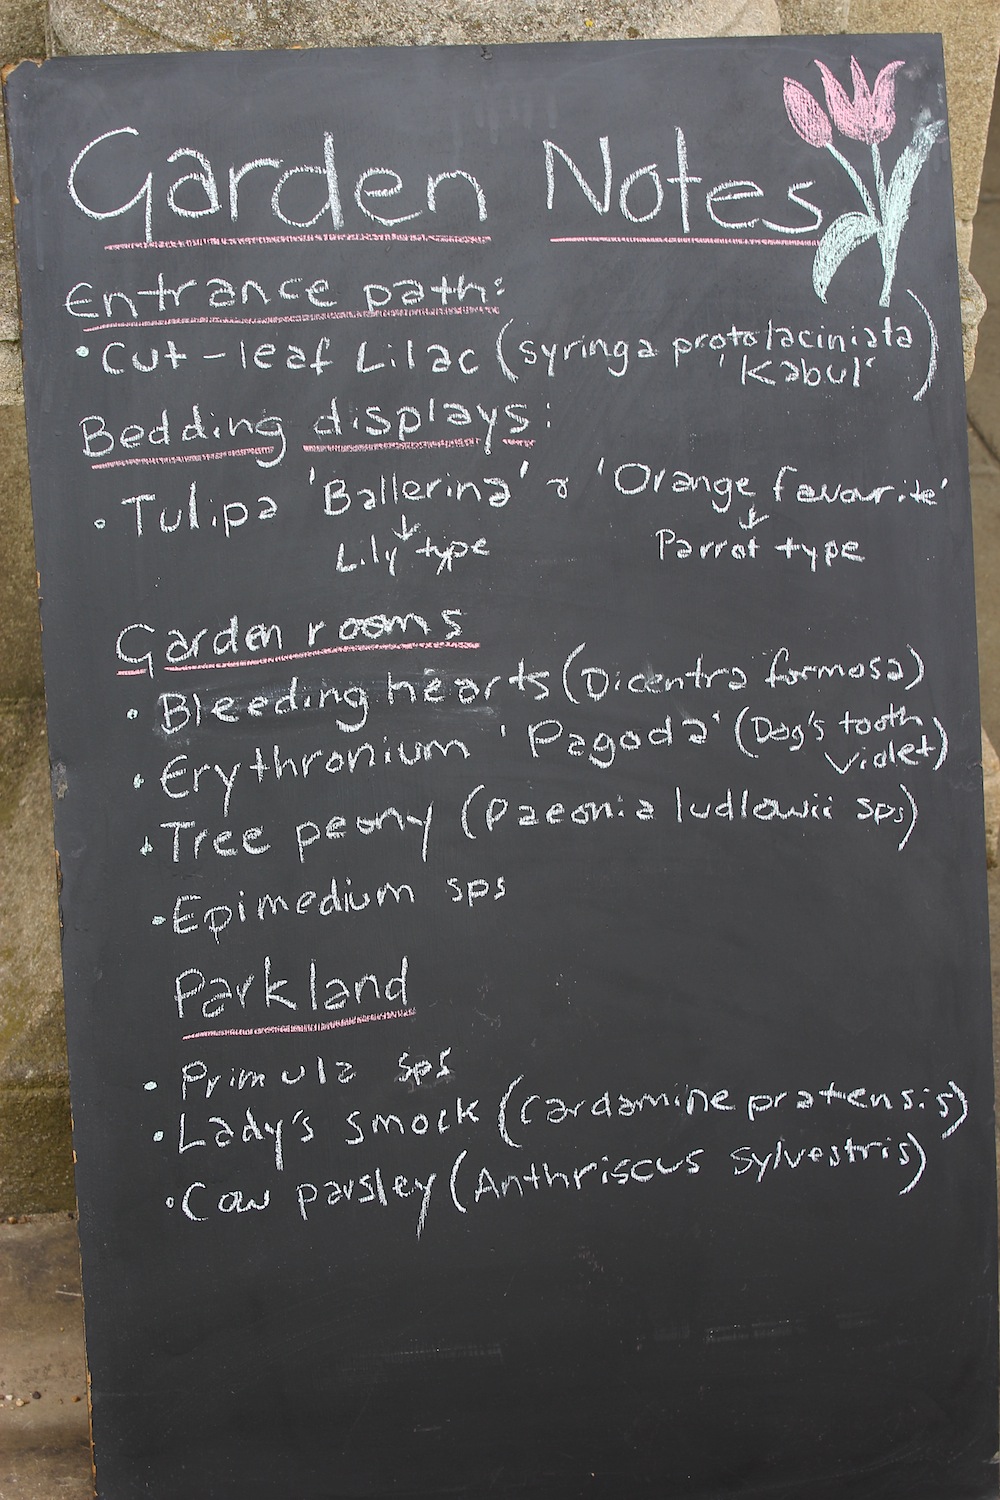 Garden Notes
Entrance path:
• Cut-leaf Lilac (syringa protolaciniata
'Kabul')
Bedding displays:
• Tulipa 'Ballerina' & 'Orange favourite'
↓ ↓
Lily type Parrot type
Garden rooms
• Bleeding hearts (Dicentra formosa)
• Erythronium 'Pagoda' (Dog's tooth
violet)
• Tree peony (Paeonia ludlowii sps)
• Epimedium sps
Parkland
• Primula sps
• Lady's smock (Cardamine pratensis)
• Cow parsley (Anthriscus sylvestris)